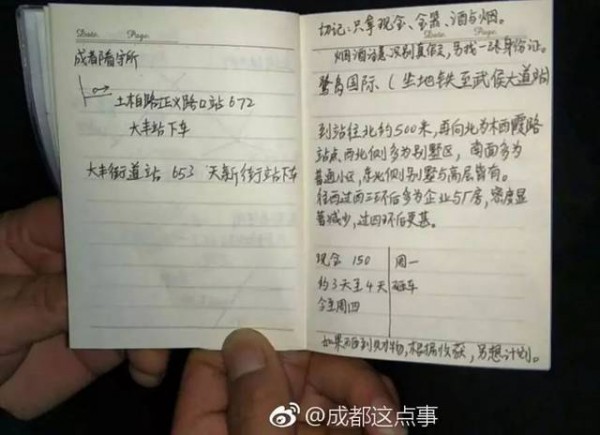 Date. Page.
成都看守所
路口站 672
大丰站下车
大丰街道站 653 站下车
切记:只拿现金、金器、酒与烟。
Date. Page.
烟酒注意识别真假,另找一张身份证。
鹭岛国际、(坐地铁至武侯大道站)
到站往北约500米,再向北为木西霞路
站点,西北侧多为别墅区,南面多为
普通小区,东北侧别墅与高层皆有。
往西过西三环后多为企业与厂房,密度显
著减少,过四环后更甚。
现金 150 周一
约3天至4天 砸车
至周四
如果 财物,根据收获,另想计划。
@成都这点事